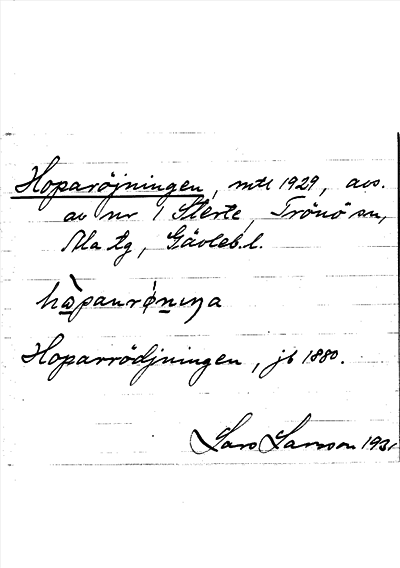 Hoparöjningen, mtl 1929, avs.
av nr 1 Sterte, Trönö sn,
Ala tg, Gävleb. l.
hàpanrǿniŋa
Hoparrödjningen, jb 1880.
Lars Larsson 193